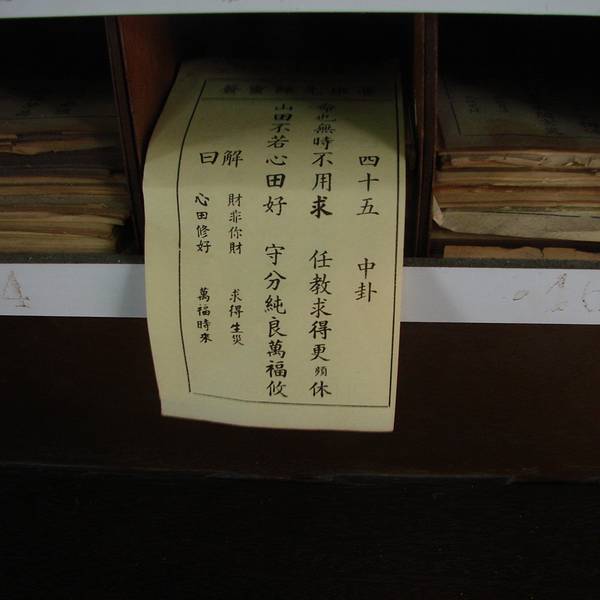 四十五 中卦
命也無時不用求 任教求得更頻休
山田不若心田好 守分純良萬福攸
解曰
財非你財 求得生災
心田修好 萬福時來